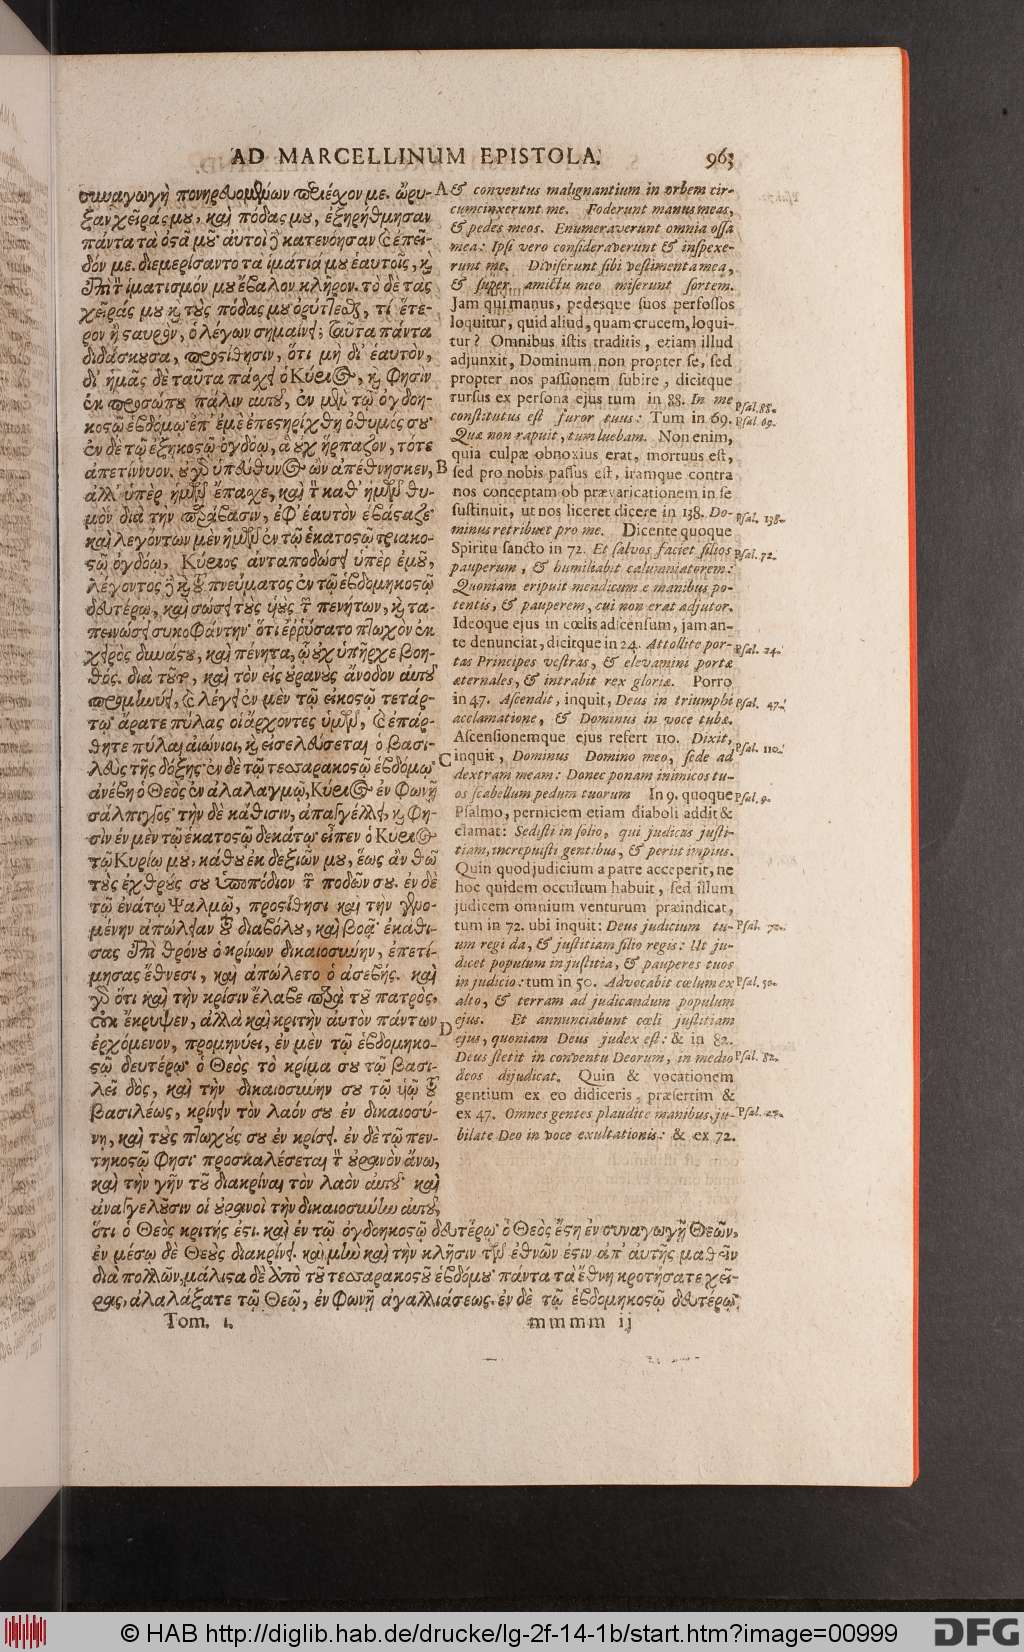 AD MARCELLINUM EPISTOLA. 963
συναγωγὴ πονηρευομένων περιέσχον με. ὤρυ-
ξαν χεῖράς μου, καὶ πόδας μου, ἐξηρίθμησαν
πάντα τὰ ὀστᾶ μου· αὐτοὶ δὲ κατενόησαν καὶ ἐπεῖ-
δόν με. διεμερίσαντο τὰ ἱμάτιά μου ἑαυτοῖς, καὶ
ἐπὶ τὸν ἱματισμόν μου ἔβαλον κλῆρον. τὸ δὲ τὰς
χεῖράς μου καὶ τοὺς πόδας μου ὀρύττεσθαι, τί ἕτε-
ρον ἢ σταυρὸν, ὁ λέγων σημαίνει; ταῦτα πάντα
διδάσκουσα, προστίθησιν, ὅτι μὴ δι' ἑαυτὸν,
δι' ἡμᾶς δὲ ταῦτα πάσχει ὁ Κύριος, καὶ φησὶν
ἐκ προσώπου πάλιν αὐτοῦ, ἐν μὲν τῷ ὀγδοη-
κοστῷ ἑβδόμῳ· ἐπ' ἐμὲ ἐπεστηρίχθη ὁ θυμός σου·
ἐν δὲ τῷ ἑξηκοστῷ ὀγδόῳ, ἃ οὐχ ἥρπαζον, τότε
ἀπετίννυον. οὐ γὰρ ὑπεύθυνος ὢν ἀπέθνησκεν,
ἀλλ' ὑπὲρ ἡμῶν ἔπασχε, καὶ τὴν καθ' ἡμῶν θυ-
μὸν διὰ τὴν παράβασιν, ἐφ' ἑαυτὸν ἐβάσταζε·
καὶ λεγόντων μὲν ἡμῶν ἐν τῷ ἑκατοστῷ τριακο-
στῷ ὀγδόῳ, Κύριος ἀνταποδώσει ὑπὲρ ἐμοῦ,
λέγοντος δὲ καὶ τοῦ πνεύματος ἐν τῷ ἑβδομηκοστῷ
δευτέρῳ, καὶ σώσει τοὺς υἱοὺς τῶν πενήτων, καὶ τα-
πεινώσει συκοφάντην· ὅτι ἐῤῥύσατο πτωχὸν ἐκ
χειρὸς δυνάστου, καὶ πένητα, ᾧ οὐχ ὑπῆρχε βοη-
θός. διὰ τοῦτο, καὶ τὸν εἰς οὐρανοὺς ἄνοδον αὐτοῦ
προμηνύει, καὶ λέγει ἐν μὲν τῷ εἰκοστῷ τετάρ-
τῳ· ἄρατε πύλας οἱ ἄρχοντες ὑμῶν, καὶ ἐπάρ-
θητε πύλαι αἰώνιοι, καὶ εἰσελεύσεται ὁ βασι-
λεὺς τῆς δόξης· ἐν δὲ τῷ τεσσαρακοστῷ ἑβδόμῳ·
ἀνέβη ὁ Θεὸς ἐν ἀλαλαγμῷ, Κύριος ἐν φωνῇ
σάλπιγγος· τὴν δὲ κάθισιν, ἀπαγγέλλει, καὶ φη-
σὶν ἐν μὲν τῷ ἑκατοστῷ δεκάτῳ· εἶπεν ὁ Κύριος
τῷ Κυρίῳ μου, κάθου ἐκ δεξιῶν μου, ἕως ἂν θῶ
τοὺς ἐχθρούς σου ὑποπόδιον τῶν ποδῶν σου. ἐν δὲ
τῷ ἐνάτῳ ψαλμῷ, προστίθησι καὶ τὴν γενο-
μένην ἀπώλειαν τοῦ διαβόλου, καὶ βοᾷ· ἐκάθι-
σας ἐπὶ θρόνου ὁ κρίνων δικαιοσύνην, ἐπετί-
μησας ἔθνεσι, καὶ ἀπώλετο ὁ ἀσεβής. καὶ
γὰρ ὅτι καὶ τὴν κρίσιν ἔλαβε παρὰ τοῦ πατρὸς,
οὐκ ἔκρυψεν, ἀλλὰ καὶ κριτὴν αὐτὸν πάντων
ἐρχόμενον, προμηνύει, ἐν μὲν τῷ ἑβδομηκο-
στῷ δευτέρῳ· ὁ Θεὸς τὸ κρίμα σου τῷ βασι-
λεῖ δὸς, καὶ τὴν δικαιοσύνην σου τῷ υἱῷ τοῦ
βασιλέως, κρίνειν τὸν λαόν σου ἐν δικαιοσύ-
νῃ, καὶ τοὺς πτωχούς σου ἐν κρίσει. ἐν δὲ τῷ πεν-
τηκοστῷ φησι· προσκαλέσεται τὸν οὐρανὸν ἄνω,
καὶ τὴν γῆν τοῦ διακρῖναι τὸν λαὸν αὐτοῦ· καὶ
ἀναγγελοῦσιν οἱ οὐρανοὶ τὴν δικαιοσύνην αὐτοῦ,
ὅτι ὁ Θεὸς κριτής ἐστι. καὶ ἐν τῷ ὀγδοηκοστῷ δευτέρῳ· ὁ Θεὸς ἔστη ἐν συναγωγῇ Θεῶν,
ἐν μέσῳ δὲ Θεοὺς διακρίνει. καὶ μὴν καὶ τὴν κλῆσιν τῶν ἐθνῶν ἔστιν ἀπ' αὐτῆς μαθεῖν
διὰ πολλῶν, μάλιστα δὲ ἀπὸ τοῦ τεσσαρακοστοῦ ἑβδόμου· πάντα τὰ ἔθνη κροτήσατε χεῖ-
ρας, ἀλαλάξατε τῷ Θεῷ, ἐν φωνῇ ἀγαλλιάσεως. ἐν δὲ τῷ ἑβδομηκοστῷ δευτέρῳ·
A
B
C
D
& conventus malignantium in orbem cir-
cumcinxerunt me. Foderunt manus meas,
& pedes meos. Enumeraverunt omnia ossa
mea: Ipsi vero consideraverunt & inspexe-
runt me. Diviserunt sibi vestimenta mea,
& super amictu meo miserunt sortem.
Jam qui manus, pedesque suos perfossos
loquitur, quid aliud, quam crucem, loqui-
tur? Omnibus istis traditis, etiam illud
adjunxit, Dominum non propter se, sed
propter nos passionem subire, dicitque
rursus ex persona ejus tum in 88. In me
constitutus est furor tuus: Tum in 69.
Quæ non rapuit, tum luebam. Non enim,
quia culpæ obnoxius erat, mortuus est,
sed pro nobis passus est, iramque contra
nos conceptam ob prævaricationem in se
sustinuit, ut nos liceret dicere in 138. Do-
minus retribuet pro me. Dicente quoque
Spiritu sancto in 72. Et salvos faciet filios
pauperum, & humiliabit calumniatorem:
Quoniam eripuit mendicum e manibus po-
tentis, & pauperem, cui non erat adjutor.
Ideoque ejus in cœlis adscensum, jam an-
te denunciat, dicitque in 24. Attollite por-
tas Principes vestras, & elevamini portæ
æternales, & intrabit rex gloriæ. Porro
in 47. Ascendit, inquit, Deus in triumphi
acclamatione, & Dominus in voce tubæ.
Ascensionemque ejus refert 110. Dixit,
inquit, Dominus Domino meo, sede ad
dextram meam: Donec ponam inimicos tu-
os scabellum pedum tuorum In 9. quoque
Psalmo, perniciem etiam diaboli addit &
clamat: Sedisti in solio, qui judicas justi-
tiam, increpuisti gentibus, & periit impius.
Quin quod judicium a patre acceperit, ne
hoc quidem occultum habuit, sed illum
judicem omnium venturum præindicat,
tum in 72. ubi inquit: Deus judicium tu-
um regi da, & justitiam filio regis: Ut ju-
dicet populum in justitia, & pauperes tuos
in judicio: tum in 50. Advocabit cœlum ex
alto, & terram ad judicandum populum
ejus. Et annunciabunt cœli justitiam
ejus, quoniam Deus judex est: & in 82.
Deus stetit in conventu Deorum, in medio
deos dijudicat. Quin & vocationem
gentium ex eo didiceris, præsertim &
ex 47. Omnes gentes plaudite manibus, ju-
bilate Deo in voce exultationis: & ex 72.
Psal. 88.
Psal. 69.
Psal. 138.
Psal. 72.
Psal. 24.
Psal. 47.
Psal. 110.
Psal. 9.
Psal. 72.
Psal. 50.
Psal. 82.
Psal. 47.
Tom. 1. mmmm ij
© HAB http://diglib.hab.de/drucke/lg-2f-14-1b/start.htm?image=00999
DFG